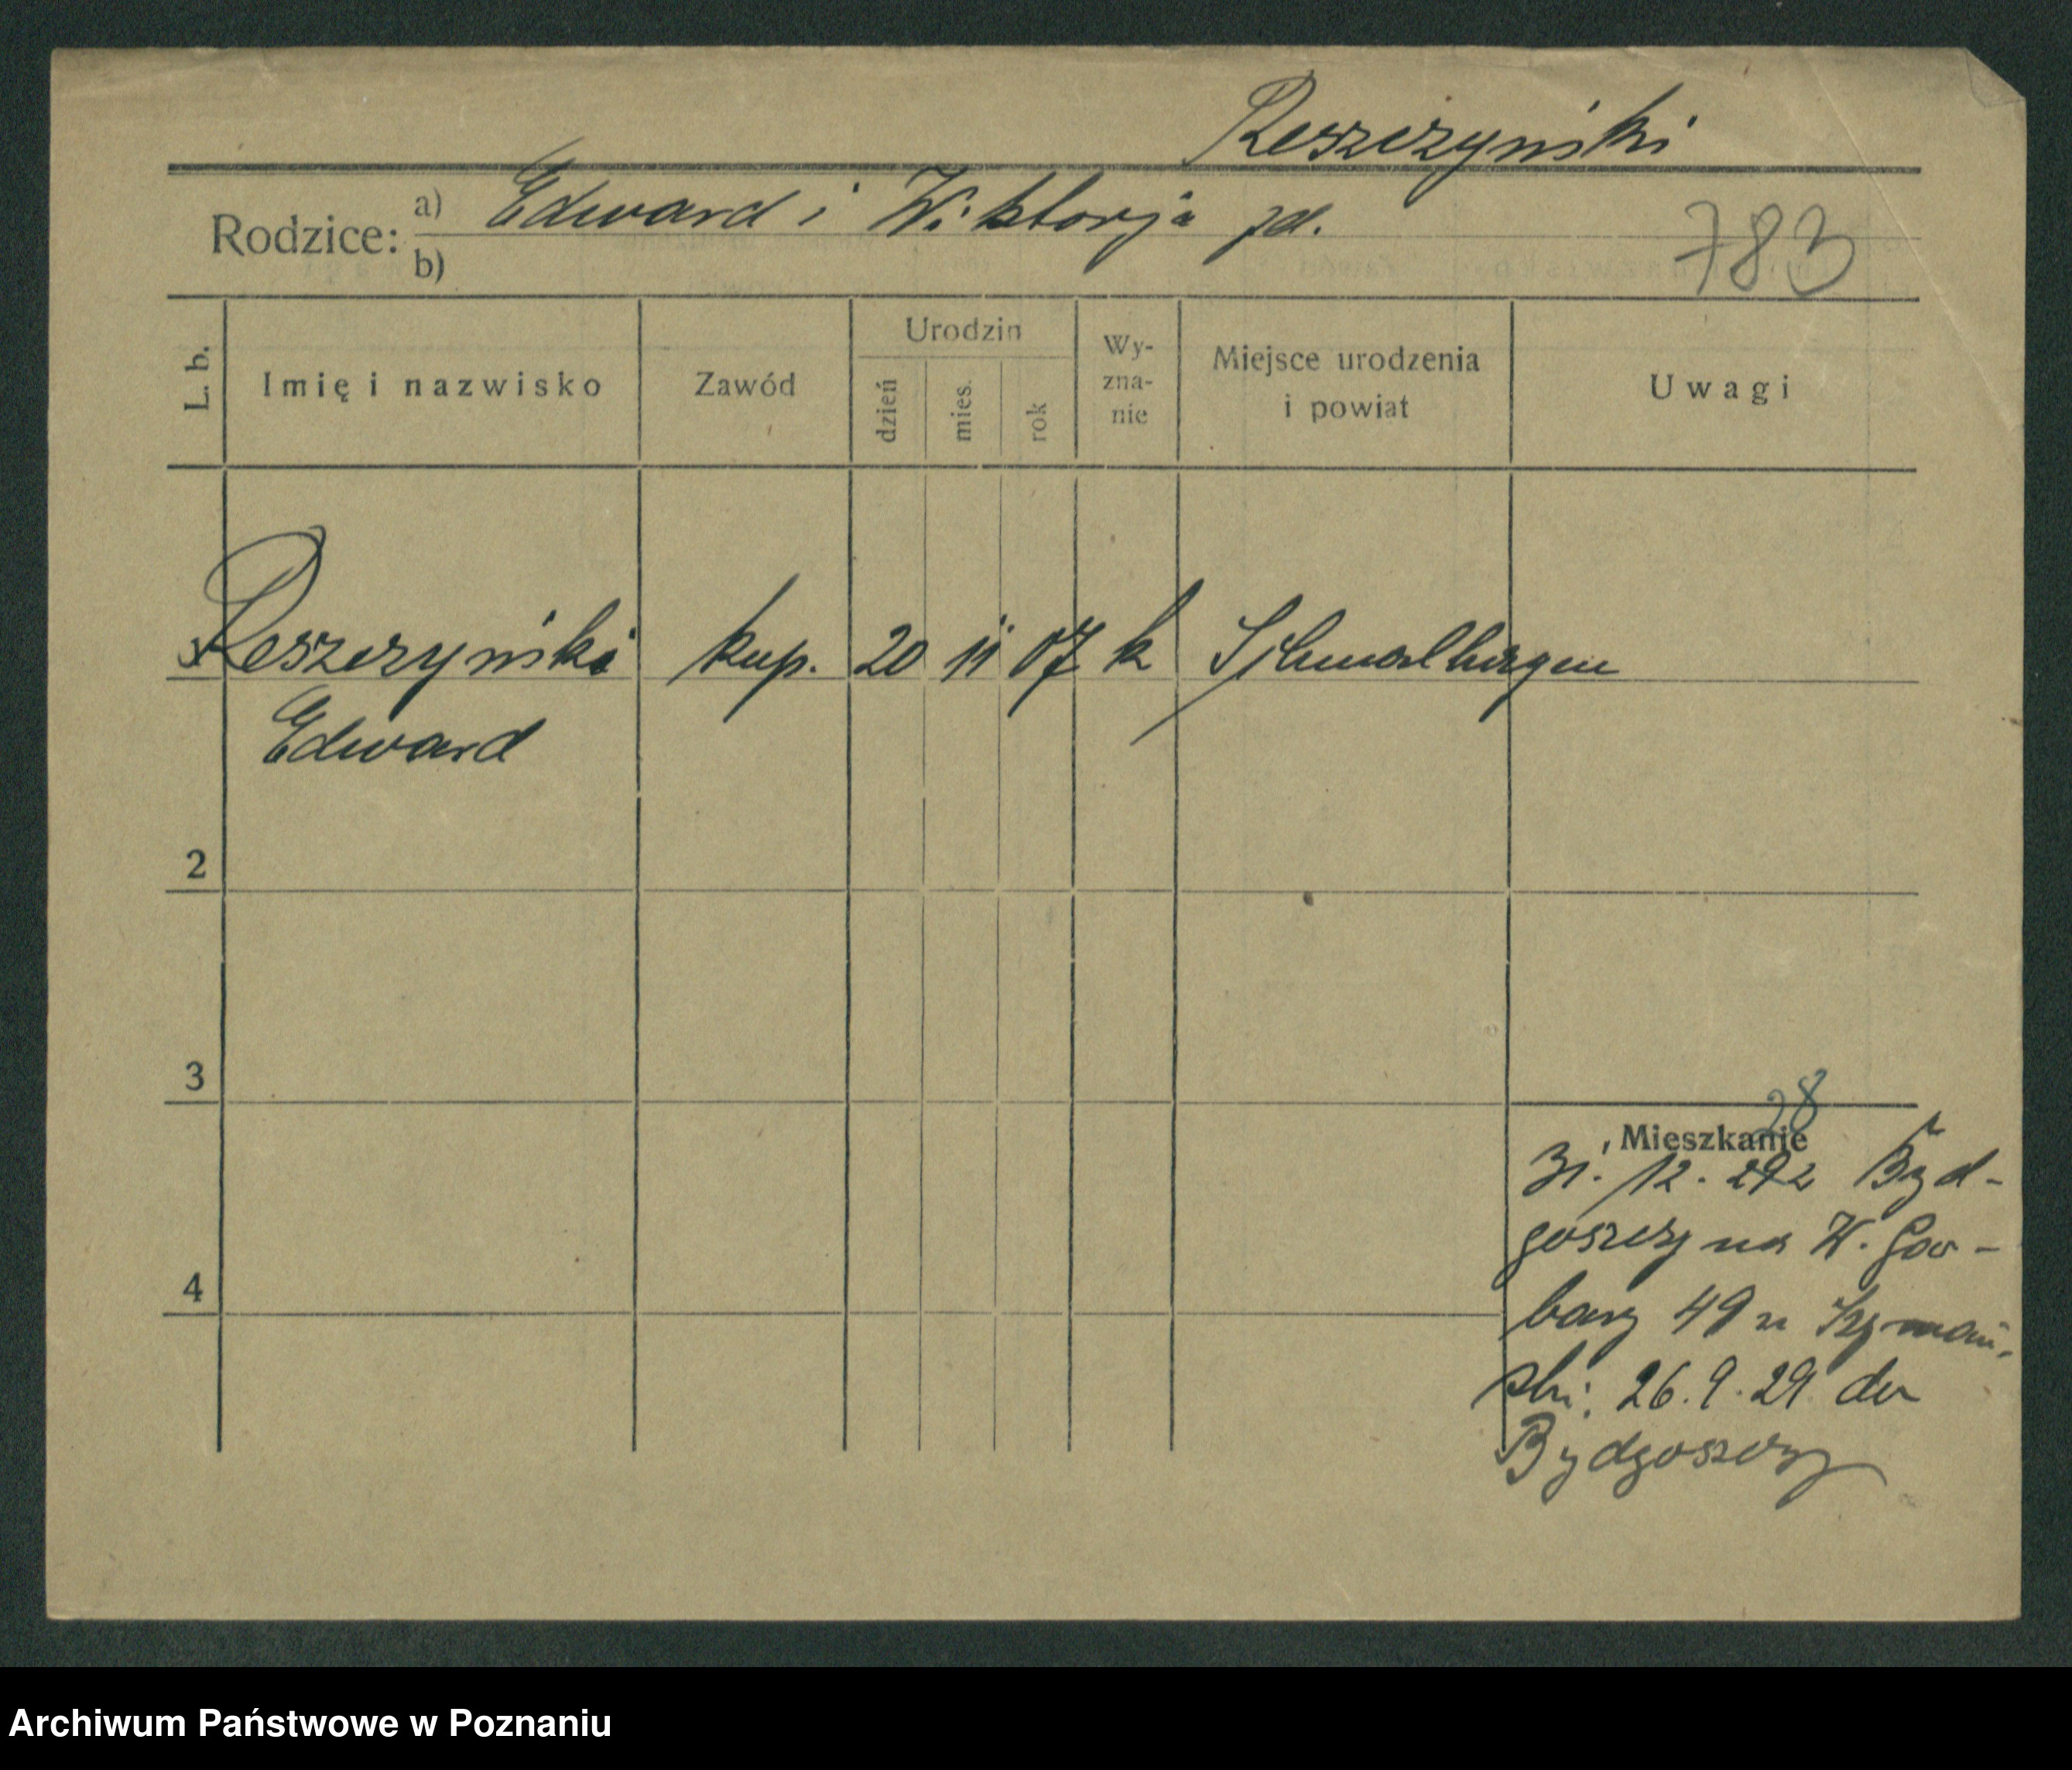 Reszczyński
Rodzice: a) Edward i Wiktorja zd.
b)
783
L. b.
Imię i nazwisko
Zawód
Urodzin
dzień
mies.
rok
Wy-
zna-
nie
Miejsce urodzenia
i powiat
Uwagi
Reszczyński kup. 20 11 07 k
Edward
2
3
4
28
Mieszkanie
31. 12. z Byd-
goszczy na W. Gar-
bary 49 u Szymań-
ski. 26.9.29 do
Bydgoszczy
Archiwum Państwowe w Poznaniu